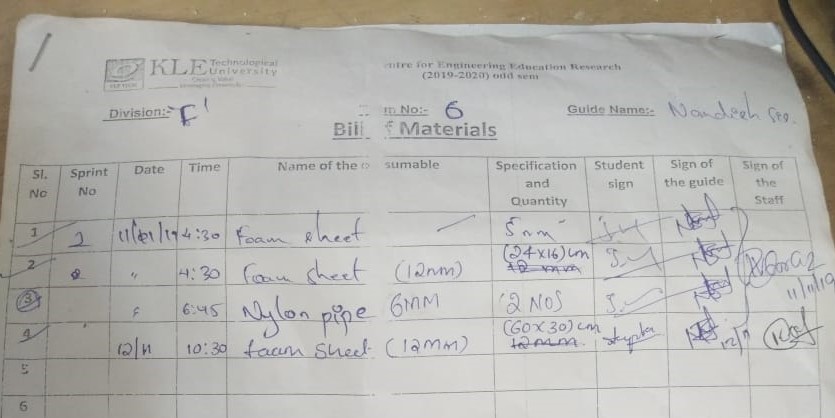 KLE Technological University
Centre for Engineering Education Research
(2019-2020) odd sem
Division:- F'
m No:- 6
Guide Name:- Nandeesh
Bill of Materials
Sl. No Sprint No Date Time Name of the sumable Specification and Quantity Student sign Sign of the guide Sign of the Staff
1 2 11/ /19 4:30 Foam sheet 5mm
2 " 4:30 Foam sheet (12mm) (24x16)cm 12 mm
3 " 6:45 Nylon pipe 6MM 2 NOS
4 12/11 10:30 foam sheet (12mm) (60x30)cm 12mm
11/11/19
12/11
5
6